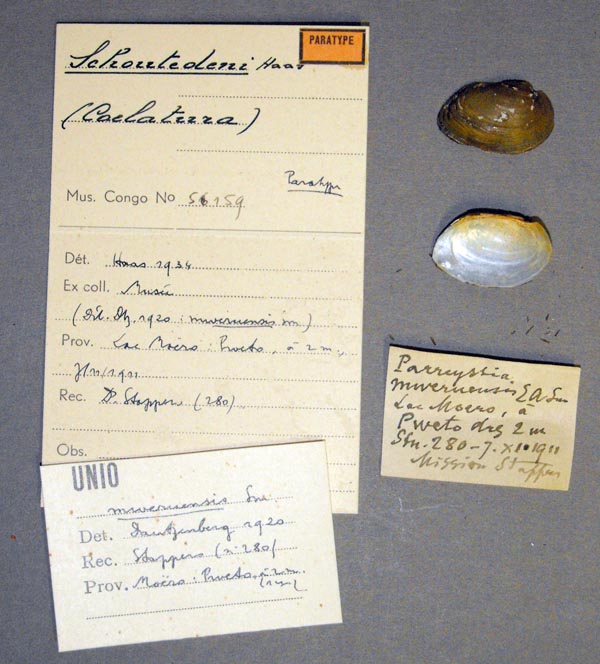 PARATYPE
Schoutedeni Haas
(Coelatura)
Paratype
Mus. Congo No 56159
Dét. Haas 1934
Ex coll. Musée
(Dét. Dtz. 1920 : mweruensis Sm)
Prov. Lac Moëro : Pweto, à 2 m
1911
Rec. Dr. Stappers (280)
Obs.
UNIO
mweruensis Sm.
Det. Dautzenberg 1920
Rec. Stappers (n° 280)
Prov. Moëro : Pweto, à 2 m.
Parreyssia
mweruensis E A Sm
Lac Moero, à
Pweto drg 2 m
Stn. 280 - 7. XI. 1911
Mission Stappers